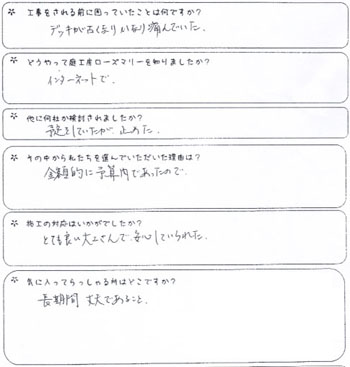 * 工事をされる前に困っていたことは何ですか?
デッキが古くなりかなり痛んでいた.
* どうやって庭工房ローズマリーを知りましたか?
インターネットで.
* 他に何社か検討されましたか?
予定をしていたが 止めた.
* その中から私たちを選んでいただいた理由は?
金額的に予算内であったので.
* 施工の対応はいかがでしたか?
とても良い大工さんで 安心していられた.
* 気に入ってらっしゃる所はどこですか?
長期間 丈夫であること.